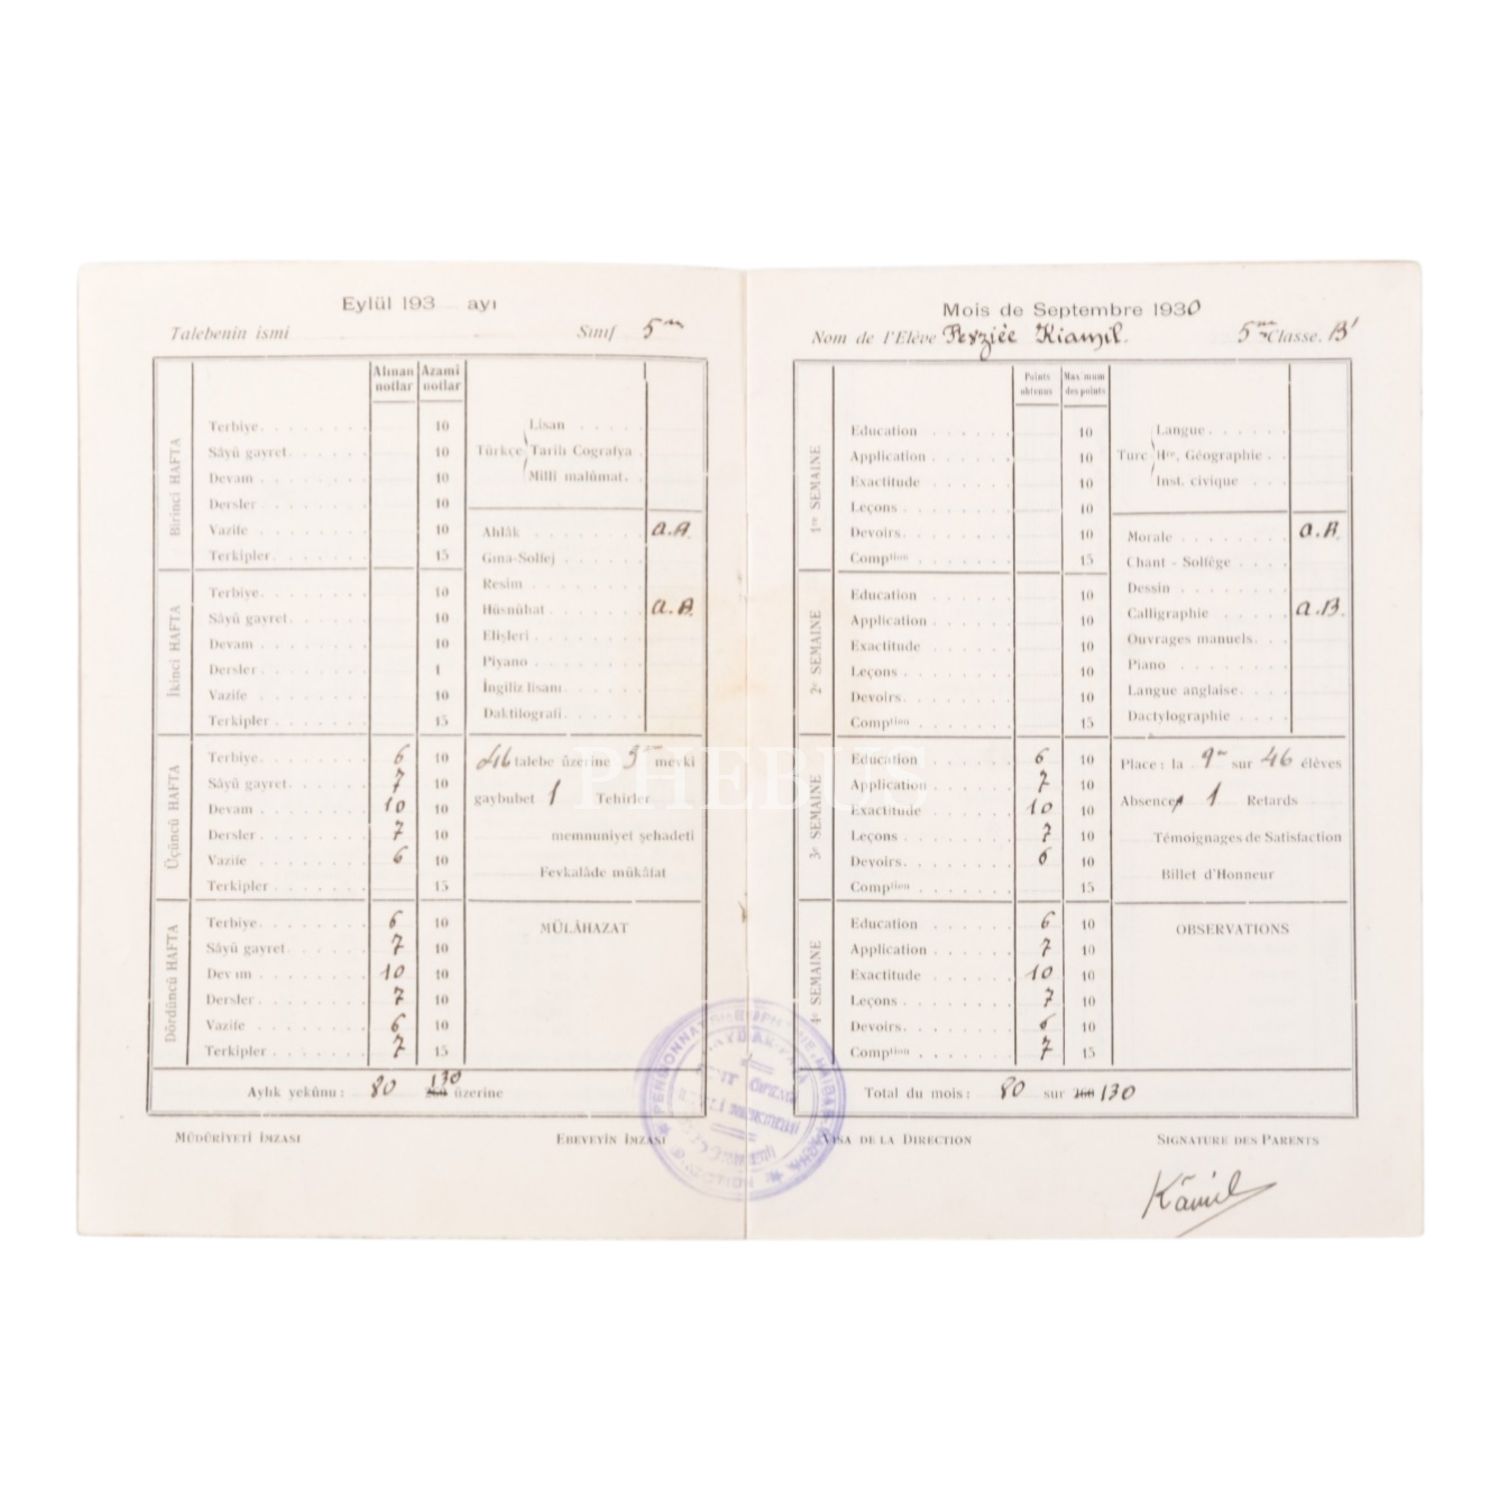 Eylül 193 ayı
Talebenin ismi Sınıf 5me
Alınan notlar Azamî notlar
Birinci HAFTA
Terbiye 10
Sâyü gayret 10
Devam 10
Dersler 10
Vazife 10
Terkipler 15
İkinci HAFTA
Terbiye 10
Sâyü gayret 10
Devam 10
Dersler 1
Vazife 10
Terkipler 15
Üçüncü HAFTA
Terbiye 6 10
Sâyü gayret 7 10
Devam 10 10
Dersler 7 10
Vazife 6 10
Terkipler 15
Dördüncü HAFTA
Terbiye 6 10
Sâyü gayret 7 10
Dev m 10 10
Dersler 7 10
Vazife 6 10
Terkipler 7 15
Türkçe
Lisan
Tarih Cografya
Millî malûmat
Ahlâk a.B.
Gına-Solfej
Resim
Hüsnühat a.B.
Elişleri
Piyano
İngiliz lisanı
Daktilografi
46 talebe üzerine mevki
gaybubet 1 Tehirler
memnuniyet şehadeti
Fevkalâde mükâfat
MÜLÂHAZAT
Aylık yekûnu: 80 260 130 üzerine
MÜDÜRİYETİ İMZASI EBEVEYİN İMZASI
Mois de Septembre 1930
Nom de l'Elève Kiamil. 5me Classe. B1
Points obtenus Max mum des points
1re SEMAINE
Education 10
Application 10
Exactitude 10
Leçons 10
Devoirs 10
Comption 15
2e SEMAINE
Education 10
Application 10
Exactitude 10
Leçons 10
Devoirs 10
Comption 15
3e SEMAINE
Education 6 10
Application 7 10
Exactitude 10 10
Leçons 7 10
Devoirs 6 10
Comption 15
4e SEMAINE
Education 6 10
Application 7 10
Exactitude 10 10
Leçons 7 10
Devoirs 6 10
Comption 7 15
Turc
Langue
Hre, Géographie
Inst. civique
Morale a.B.
Chant - Solfège
Dessin
Calligraphie a.B.
Ouvrages manuels
Piano
Langue anglaise
Dactylographie
Place: la 9me sur 46 élèves
Absences 1 Retards
Témoignages de Satisfaction
Billet d'Honneur
OBSERVATIONS
Total du mois: 80 sur 260 130
VISA DE LA DIRECTION SIGNATURE DES PARENTS
Kâmil
PHEBUS